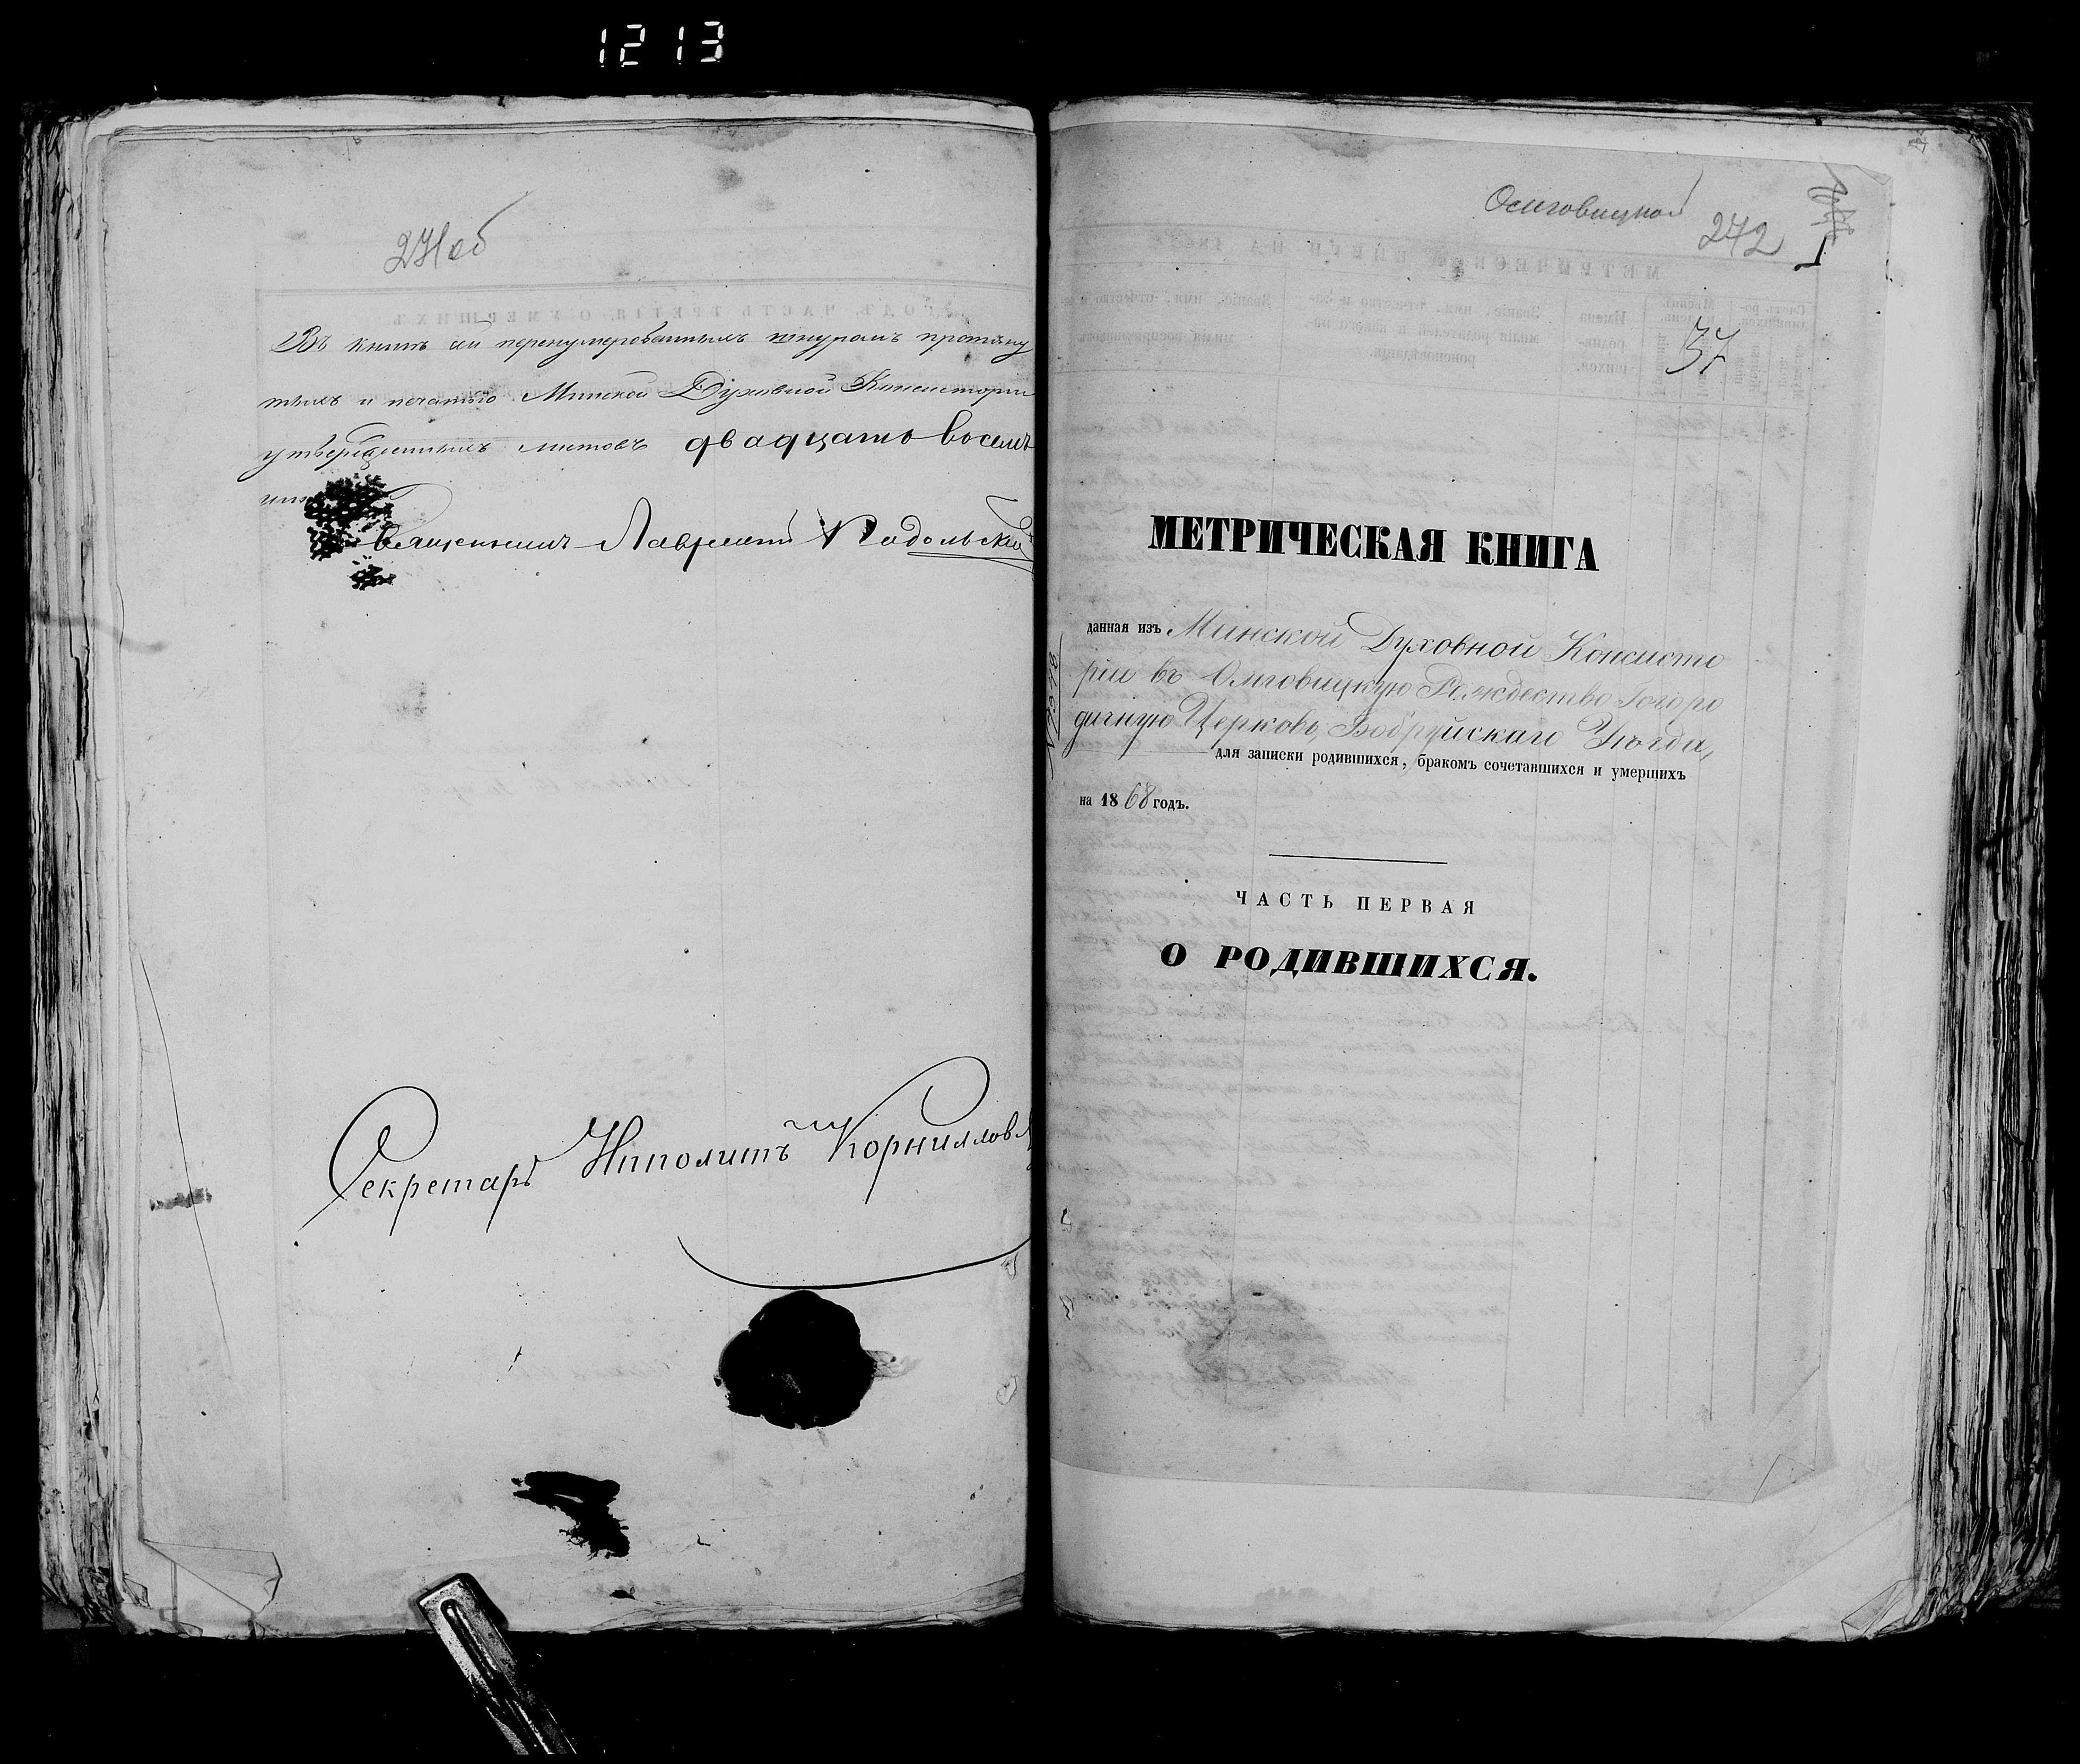 1213
271об
Въ книгѣ сей перенумерованныхъ шнуромъ протяну
тыхъ и печатью Минской Духовной Консисторіи
утвержденныхъ листовъ двадцать восемь
Священникъ Лаврентій Подольскій
Секретарь Ипполитъ Корниллов
272
1
37
МЕТРИЧЕСКАЯ КНИГА
данная изъ Минской Духовной Консисто
ріи въ Омговицкую Рождество-Богоро
дичную Церковь, Бобруйскаго Уѣзда,
для записки родившихся, бракомъ сочетавшихся и умершихъ
на 1868 годъ.
ЧАСТЬ ПЕРВАЯ
О РОДИВШИХСЯ.